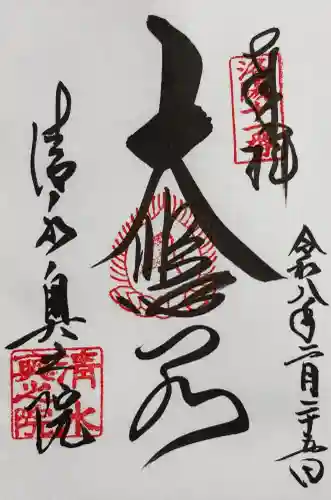 奉拝
令和八年二月二十五日
大悲閣
清水奥之院
清水
奥之院